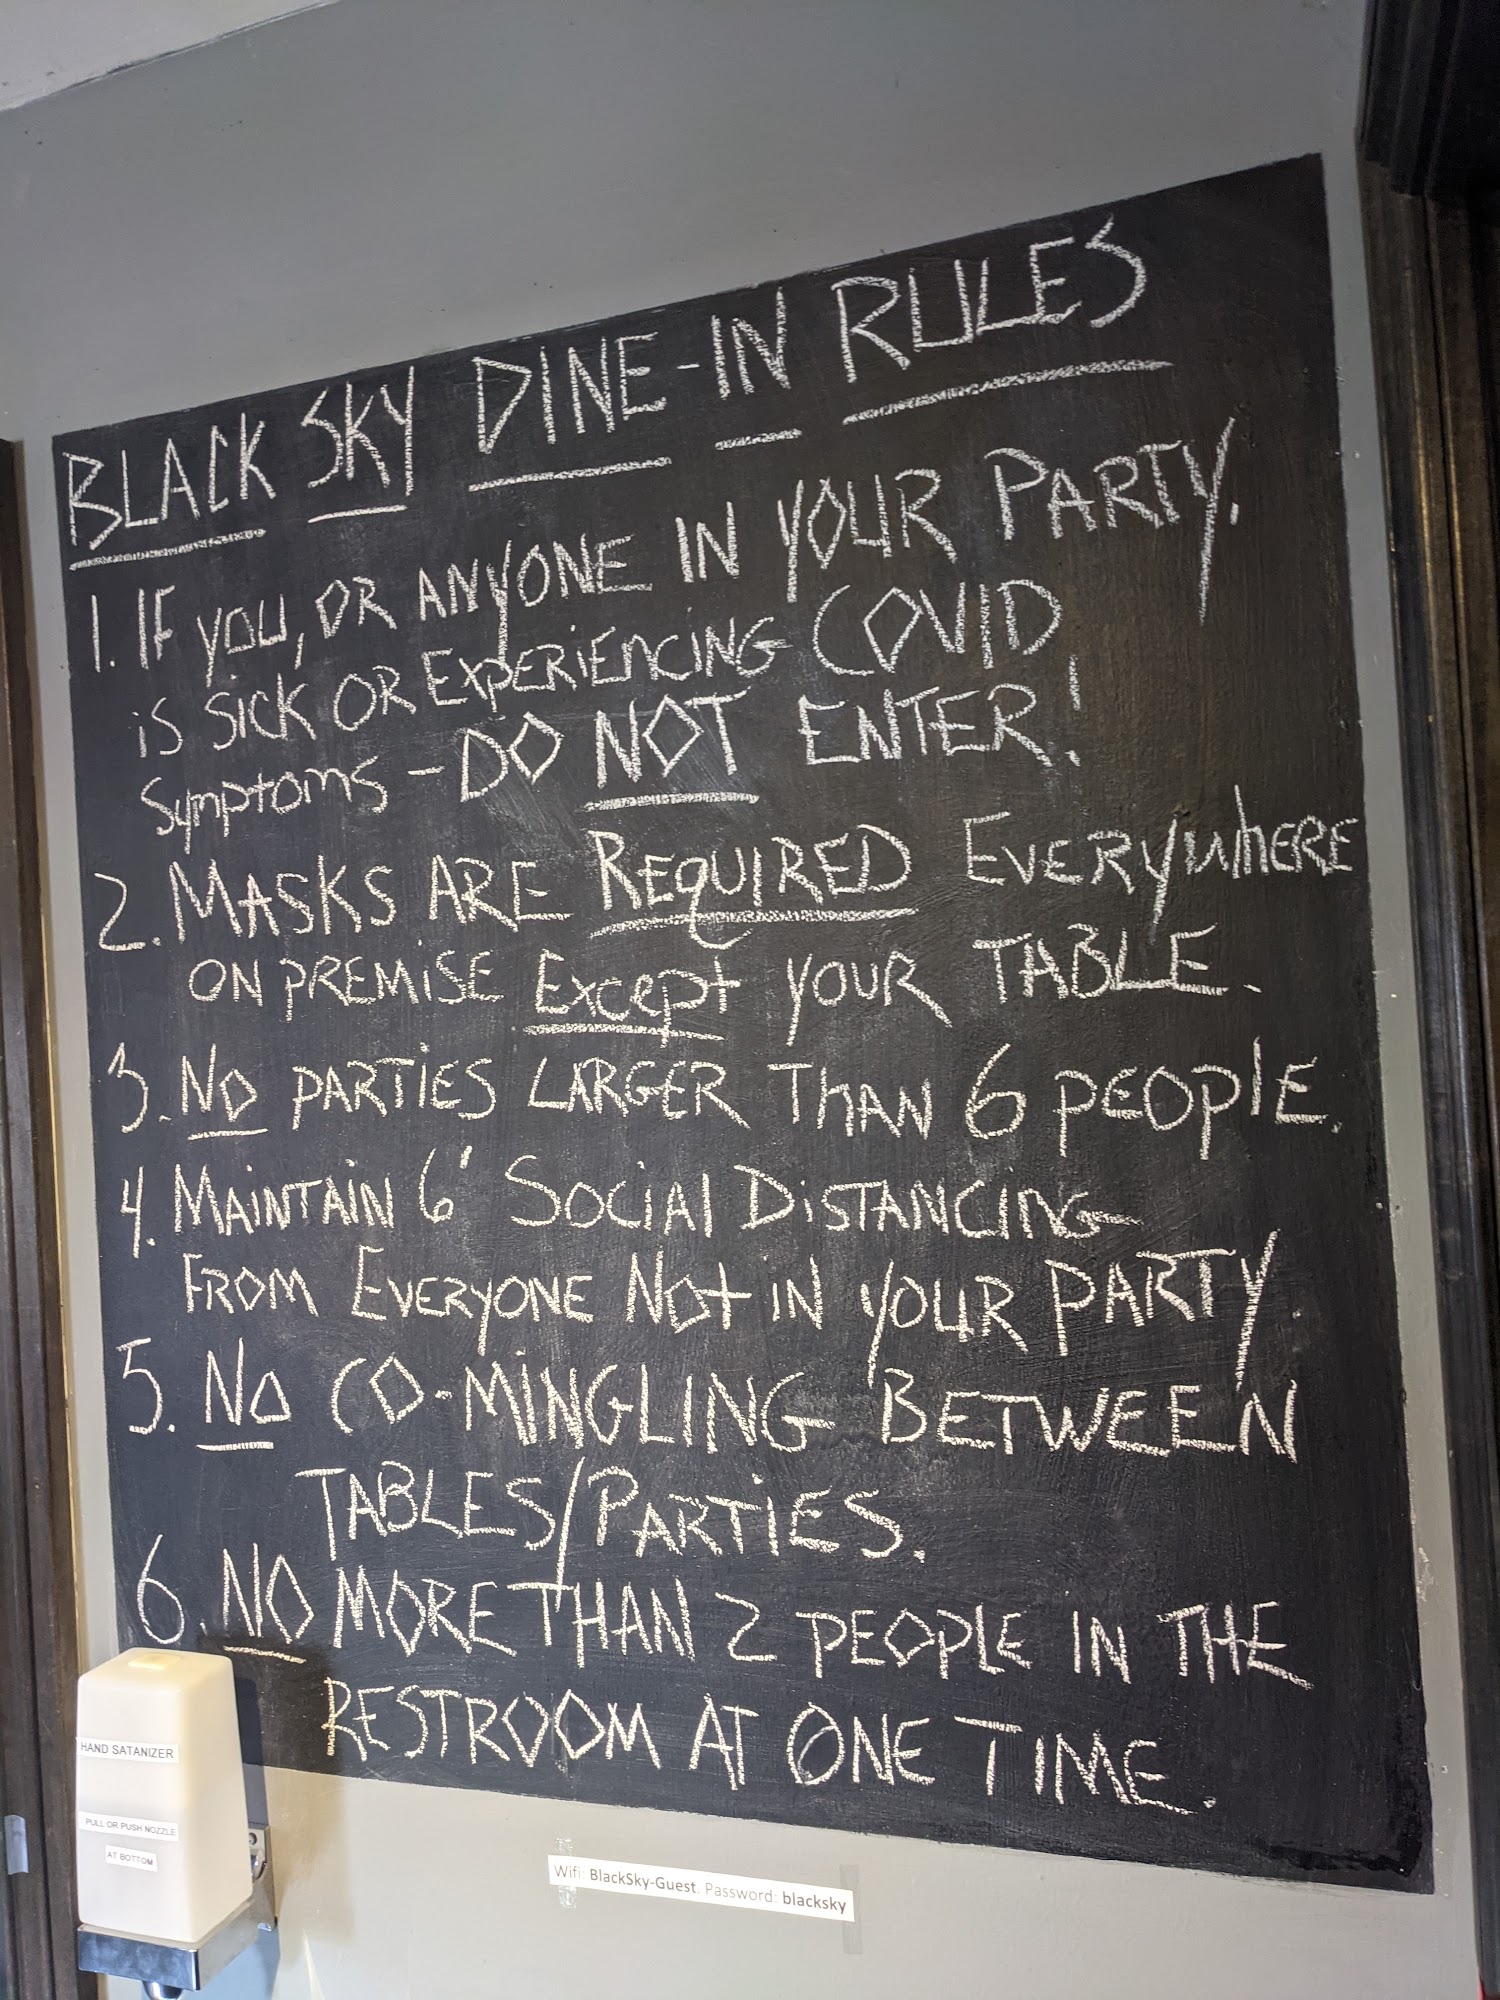 BLACK SKY DINE-IN RULES
1. IF YOU, OR ANYONE IN YOUR PARTY.
is SICK OR EXPERIENCING COVID
Symptoms - DO NOT ENTER!
2. MASKS ARE REQUIRED EVERYWHERE
ON PREMISE Except YOUR TABLE.
3. NO PARTIES LARGER THAN 6 PEOPLE.
4. MAINTAIN 6' SOCIAL DISTANCING
FROM EVERYONE NOT IN YOUR PARTY
5. NO CO-MINGLING BETWEEN
TABLES/PARTIES.
6. NO MORE THAN 2 PEOPLE IN THE
RESTROOM AT ONE TIME.
HAND SATANIZER
PULL OR PUSH NOZZLE
AT BOTTOM
Wifi: BlackSky-Guest. Password: blacksky